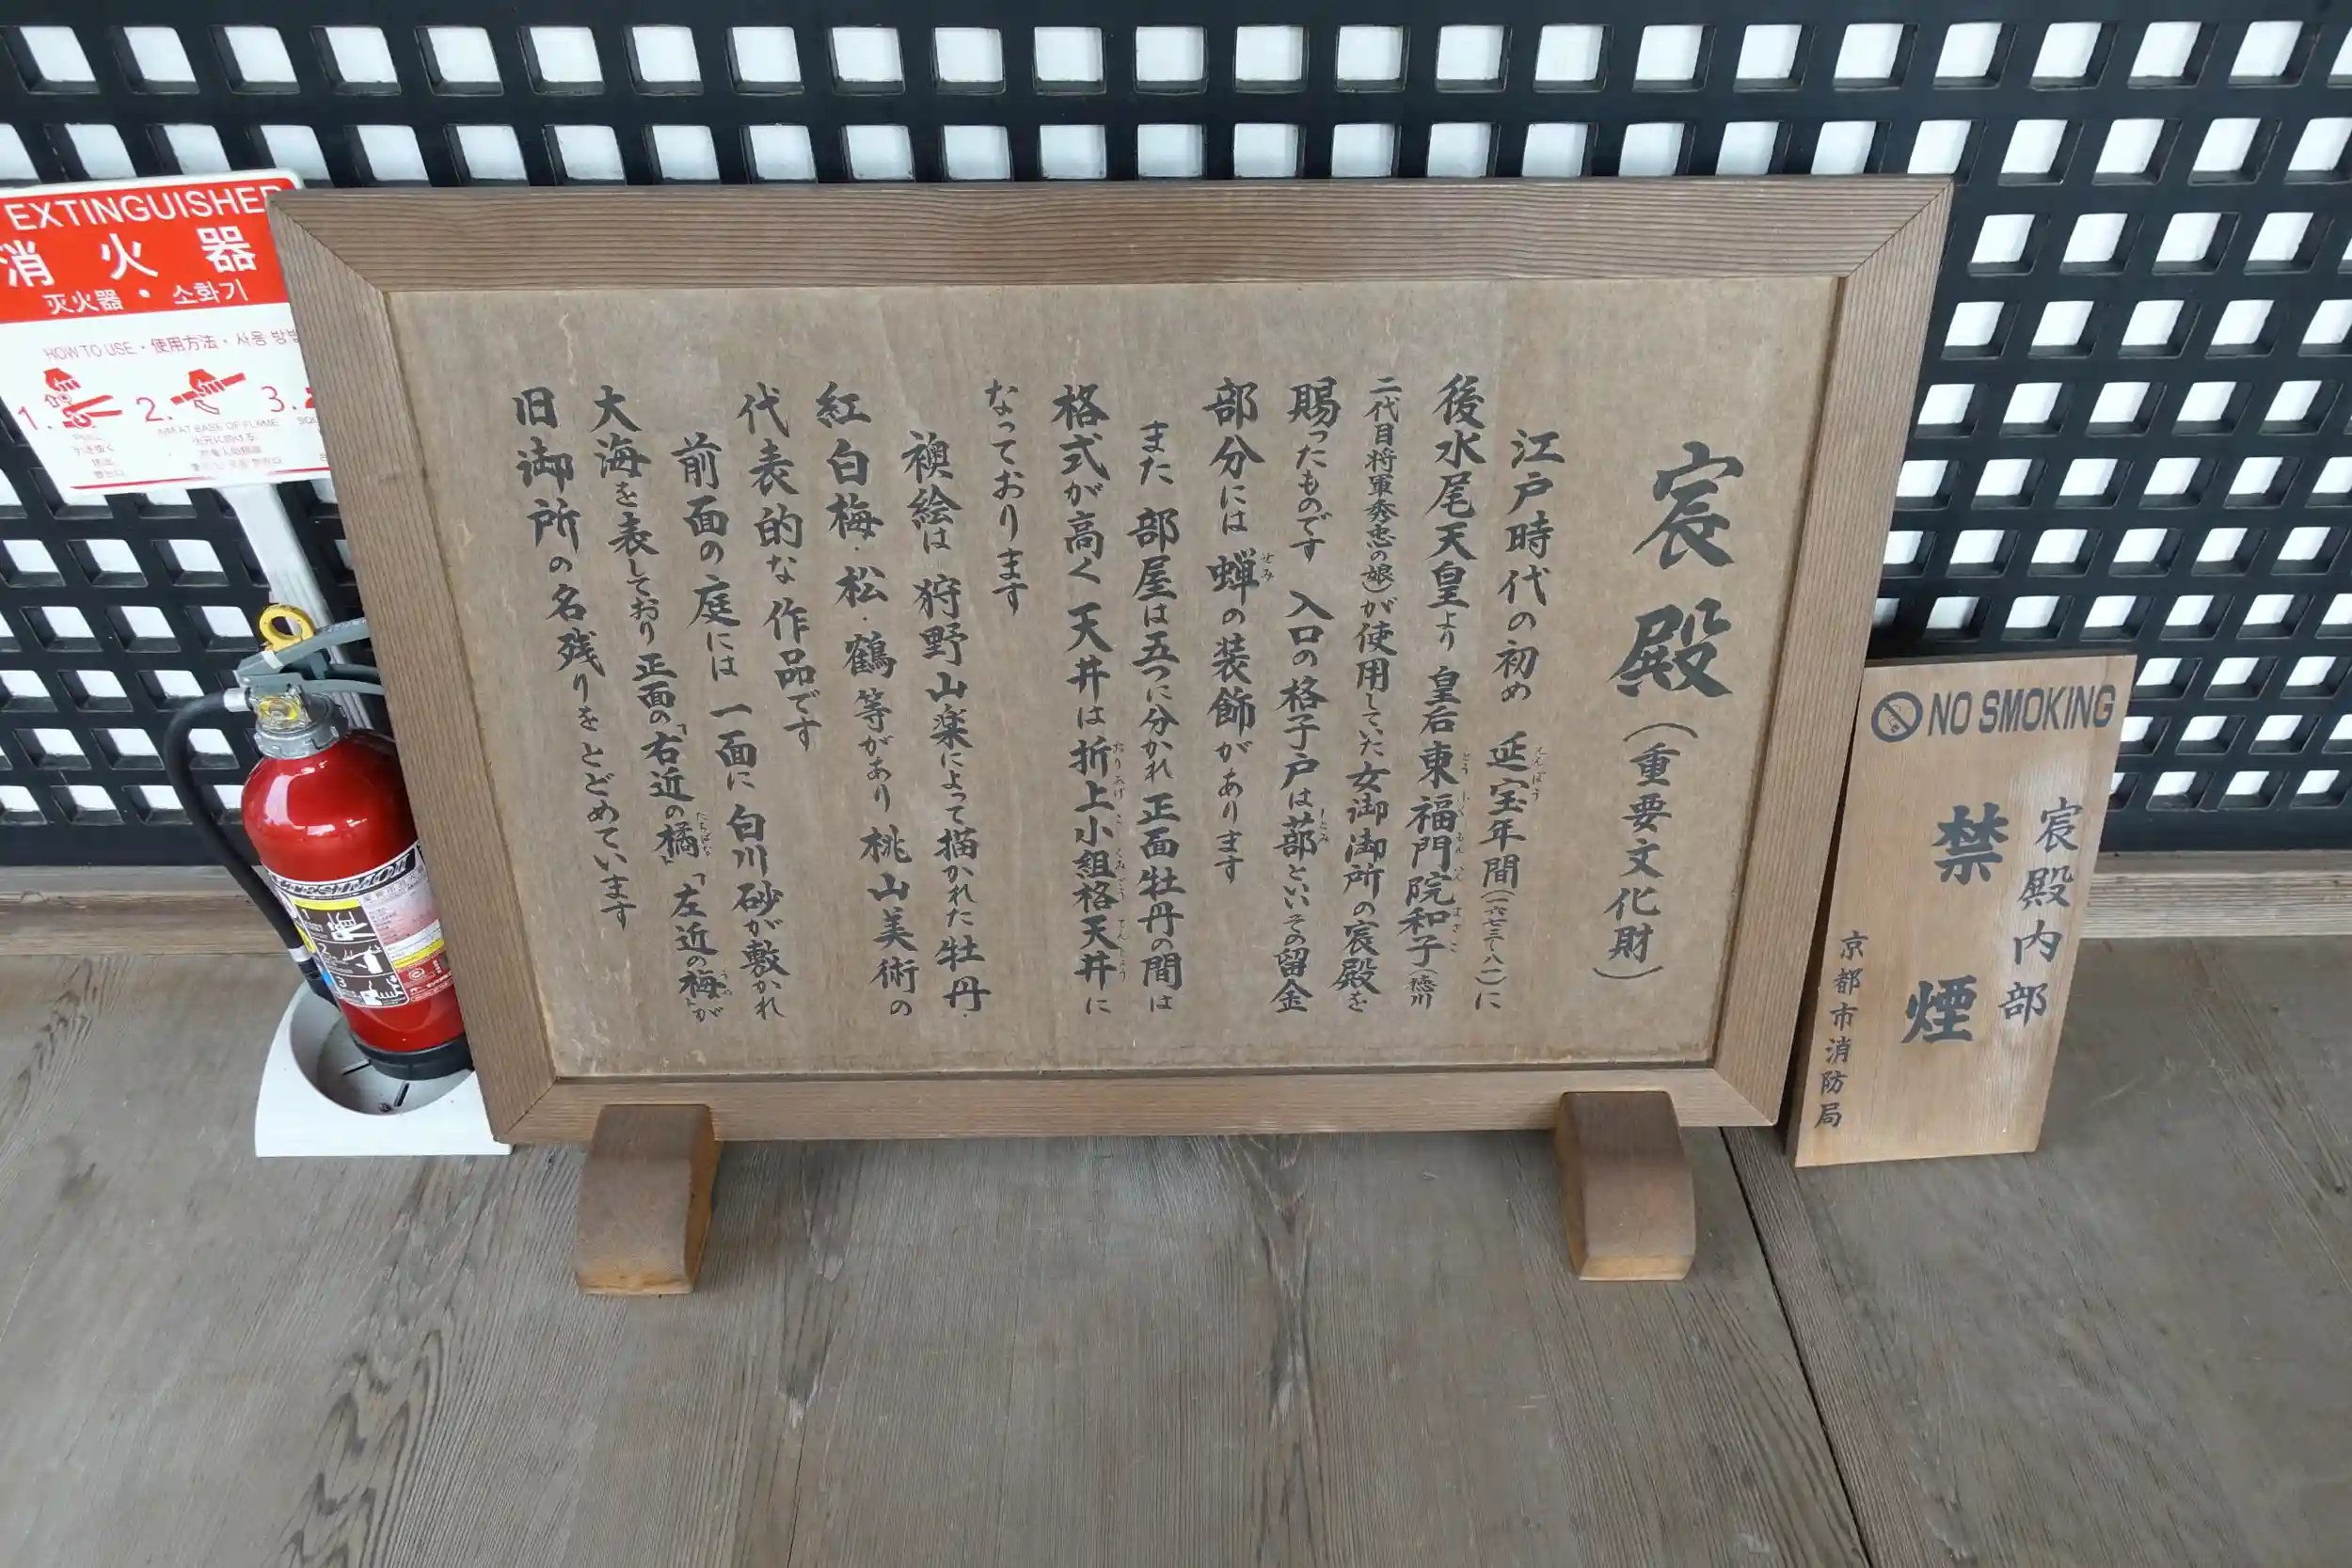 EXTINGUISHER
消火器
灭火器・소화기
HOW TO USE・使用方法・사용 방법
1. 2. 3.
AIM AT BASE OF FLAME
宸殿（重要文化財）
江戸時代の初め 延宝年間（一六七三〜八一）に
後水尾天皇より 皇后東福門院和子（徳川
二代目将軍秀忠の娘）が使用していた女御御所の宸殿を
賜ったものです 入口の格子戸は蔀といいその留金
部分には 蝉の装飾があります
また 部屋は五つに分かれ 正面牡丹の間は
格式が高く 天井は折上小組格天井に
なっております
襖絵は 狩野山楽によって描かれた牡丹・
紅白梅・松・鶴等があり 桃山美術の
代表的な作品です
前面の庭には 一面に白川砂が敷かれ
大海を表しており 正面の「右近の橘」「左近の梅」が
旧御所の名残りをとどめています
NO SMOKING
宸殿内部
禁煙
京都市消防局